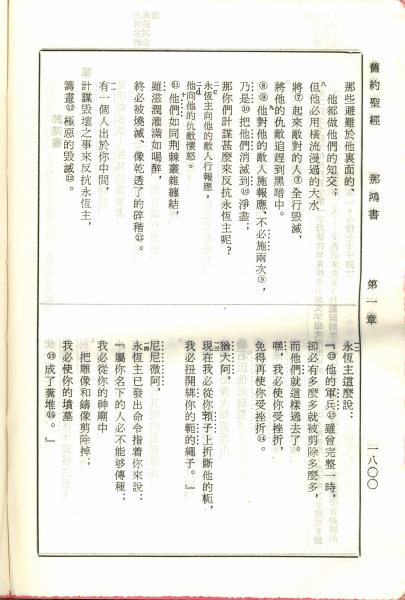 舊約聖經　那鴻書　第一章　一八〇〇
那些避難於他裏面的、
他都做他們的知交；
八但他必用橫流漫過的大水、
將⑦起來敵對的人⑦全行毀滅，
將他的仇敵追趕到黑暗中。
九⑧⑨他對他的敵人施報應、不必施兩次⑨，
乃是⑩把他們消滅到⑩淨盡；
那你們計謀甚麼來反抗永恆主呢？
c永恆主向他的敵人行報應，
d他向他的仇敵懷怒。
⑪他們如同荊棘叢雜纏結，
雖滋潤灌滿如喝醉，
終必被燒滅、像乾透了的碎稭⑪。
有一個人出於你中間，
計謀毀壞之事來反抗永恆主，
籌畫⑫極惡的毀滅⑫。
永恆主這麼說：
『⑬他的軍兵⑬雖曾完整一時，
卻必有多麼多就被剪除多麼多，
而他們就這樣過去了。
嘿，我必使你受挫折，
免得再使你受挫折⑭。
猶大阿，
現在我必從你頸子上折斷他的軛，
我必扭開綁你的軛的繩子。』
尼尼微阿，
永恆主已發出命令指着你來說：
『屬你名下的人必不能够傳種；
我必從你的神廟中
把雕像和鑄像剪除掉；
我必使你的墳墓
⑮成了糞堆⑮。』